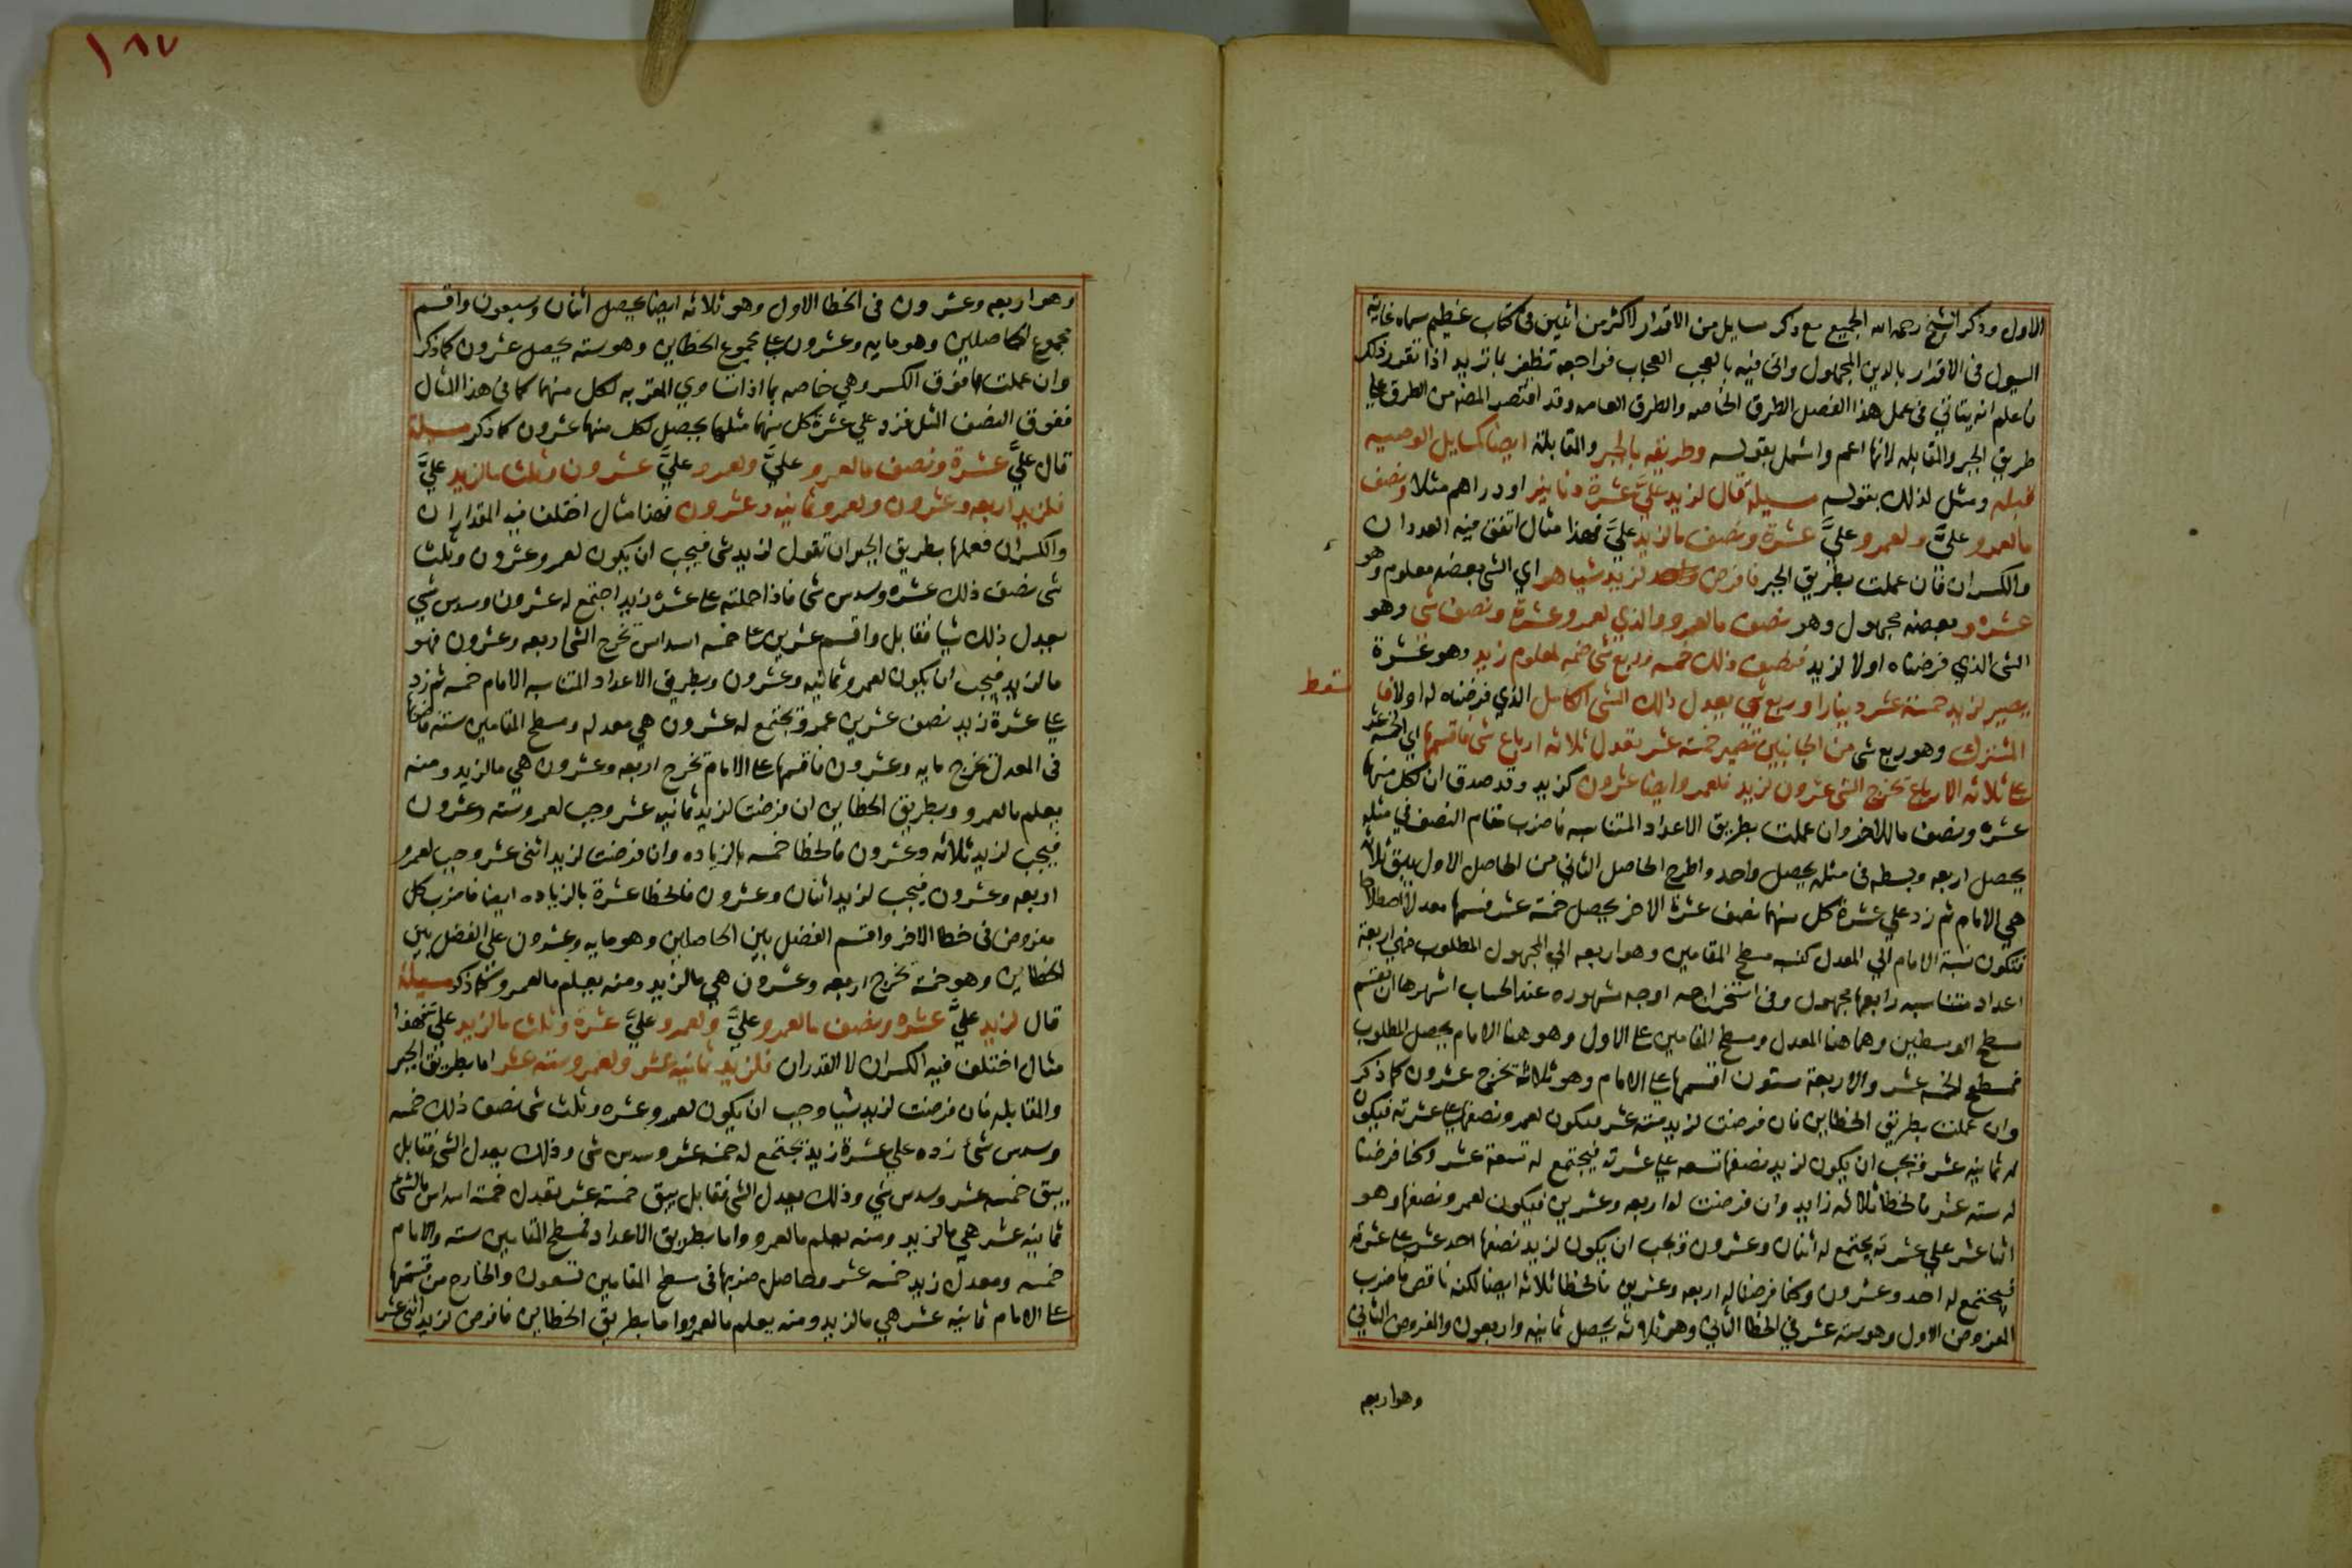 ١٨٧
الاول وذكر الشيخ رحمه الله الجميع مع ذكر مسايل من الاقدار لاكثر من اثنين في كتاب عظيم سماه غاية
السول في الاقرار بالدين المجهول واتى فيه بالعجب العجاب فراجعه تظفر بما تريد اذا تقرر ذلك
فاعلم انه يتاتي في عمل هذا الفصل الطرق الخاصه والطرق العامه وقد اقتصر المص من الطرق على
طريق الجبر والمقابله لانها اعم واشمل بقوله وطريقه بالجبر والمقابلة ايضا كمسايل الوصيه
قبله ومثل لذلك بقوله مسيلة قال لزيد عليَّ عشرة دنانير او دراهم مثلا ونصف
مالعمرو عليَّ ولعمرو عليَّ عشرة ونصف مالزيد عليَّ فهذا مثال اتفق فيه العددان
والكسران فان عملت بطريق الجبر فافرض لزيد شيا هو اي الشي بعضه معلوم وهو
عشره وبعضه مجهول وهو نصف مالعمرو والذي لعمرو عشرة ونصف شى وهو
الشى الذي فرضناه اولا لزيد فنصف ذلك خمسه وربع شى ضمه لمعلوم زيد وهو عشرة
سقط
يصير لزيد خمسة عشر دينارا وربع شي يعدل ذلك الشى الكامل الذي فرضناه له اولا
المشترك وهو ربع شى من الجانبين تصير خمسة عشر تعدل ثلاثه ارباع شى فاقسمها اي الخمسه عشر
على ثلاثه الارباع تخرج الشى عشرون لزيد فلعمرو ايضا عشرون كزيد وقد صدق ان لكل منهما
عشره ونصف ماللاخر وان عملت بطريق الاعداد المتناسبه فاضرب مقام النصف في مثله
يحصل اربعه وبسطه في مثله يحصل واحد واطرح الحاصل الثاني من الحاصل الاول يبق ثلاثه
هي الامام ثم زد علي عشرة كل منهما نصف عشرة الاخر يحصل خمسة عشر فسمها معدلا اصطلاحا
فتكون نسبة الامام الي المعدل كنسبه مسطح المقامين وهو اربعه الي المجهول المطلوب فهي اربعة
اعداد متناسبه رابعها مجهول وفي استخراجه اوجه مشهوره عند الحساب اشهرها ان تقسم
مسطح الوسطين وهما هنا المعدل ومسطح المقامين على الاول وهو هنا الامام يحصل المطلوب
فمسطح الخمسه عشر والاربعة ستون اقسمها على الامام وهو ثلاثة تخرج عشرون كما ذكر
وان عملت بطريق الخطاين فان فرضت لزيد ستة عشر فيكون لعمرو نصفها على عشرته فيكون
له ثمانيه عشر فيجب ان يكون لزيد نصفها تسعه على عشرته فيجتمع له تسعة عشر وكنا فرضنا
له سته عشر فالخطا ثلاثه زايد وان فرضت له اربعه وعشرين فيكون لعمرو نصفها وهو
اثنا عشر علي عشرته يجتمع له اثنان وعشرون فيجب ان يكون لزيد نصفها احد عشر على عشرته
فيجتمع له احد وعشرون وكنا فرضنا له اربعه وعشرين فالخطا ثلاثه ايضا لكنه ناقص فاضرب
المفروض الاول وهو سته عشر في الخطا الثاني وهو ثلاثه يحصل ثمانيه واربعون والمفروض الثاني
وهو اربعه
وهو اربعه وعشرون في الخطا الاول وهو ثلاثه ايضا يحصل اثنان وسبعون واقسم
مجموع الحاصلين وهو مايه وعشرون على مجموع الخطاين وهو سته يحصل عشرون كما ذكر
وان عملت بما فوق الكسر وهي خاصه بما اذا تساوي المقر به لكل منهما كما في هذا المثال
ففوق النصف المثل فزد علي عشرة كل منهما مثلها يحصل لكل منهما عشرون كما ذكر مسيلة
قال عليَّ عشرة ونصف مالعمرو عليَّ ولعمرو عليَّ عشرون وثلث مالزيد عليَّ
فلزيد اربعه وعشرون ولعمرو ثمانيه وعشرون فهذا مثال اختلف فيه المقداران
والكسران فعملها بطريق الجبر ان تقول لزيد شى فيجب ان يكون لعمرو عشرون وثلث
شى نصف ذلك عشره وسدس شى فاذا حملته على عشرة زيد اجتمع له عشرون وسدس شي
يعدل ذلك شيا فقابل واقسم عشرين على خمسه اسداس تخرج الشى اربعه وعشرون فهو
مالزيد فيجب ان يكون لعمرو ثمانيه وعشرون وبطريق الاعداد المتناسبه الامام خمسه ثم زد
علي عشرة زيد نصف عشرين عمرو يجتمع له عشرون هي معدله ومسطح المقامين سته فاضربها
في المعدل تخرج مايه وعشرون فاقسمها على الامام تخرج اربعه وعشرون هي مالزيد ومنه
يعلم مالعمرو وبطريق الخطاين ان فرضت لزيد ثمانيه عشر وجب لعمرو سته وعشرون
فيجب لزيد ثلاثه وعشرون فالخطا خمسه بالزياده وان فرضت لزيد اثنى عشر وجب لعمرو
اربعه وعشرون فيجب لزيد اثنان وعشرون فالخطا عشرة بالزياده ايضا فاضرب كل
مفروض في خطا الاخر واقسم الفضل بين الحاصلين وهو مايه وعشرون على الفضل بين
الخطاين وهو خمسة تخرج اربعه وعشرون هي مالزيد ومنه يعلم مالعمرو كما ذكر مسيلة
قال لزيد عليَّ عشره ونصف مالعمرو عليَّ ولعمرو عليَّ عشرة وثلث مالزيد علي فهذا
مثال اختلف فيه الكسران لا القدران فلزيد ثمانية عشر ولعمرو ستة عشر اما بطريق الجبر
والمقابله فان فرضت لزيد شيا وجب ان يكون لعمرو عشره وثلث شى نصف ذلك خمسه
وسدس شئ زده علي عشرة زيد يجتمع له خمسه عشر وسدس شى وذلك يعدل الشى فقابل
يبق خمسه عشر وسدس شي وذلك يعدل الشى فقابل يبق خمسة عشر تعدل خمسة اسداس فالشى
ثمانيه عشر هي مالزيد ومنه يعلم مالعمرو واما بطريق الاعداد فمسطح المقامين سته والامام
خمسه ومعدل زيد خمسه عشر وحاصل ضربها في مسطح المقامين تسعون والخارج من قسمتها
على الامام ثمانيه عشر هي مالزيد ومنه يعلم مالعمرو واما بطريق الخطاين فافرض لزيد اثنى عشر